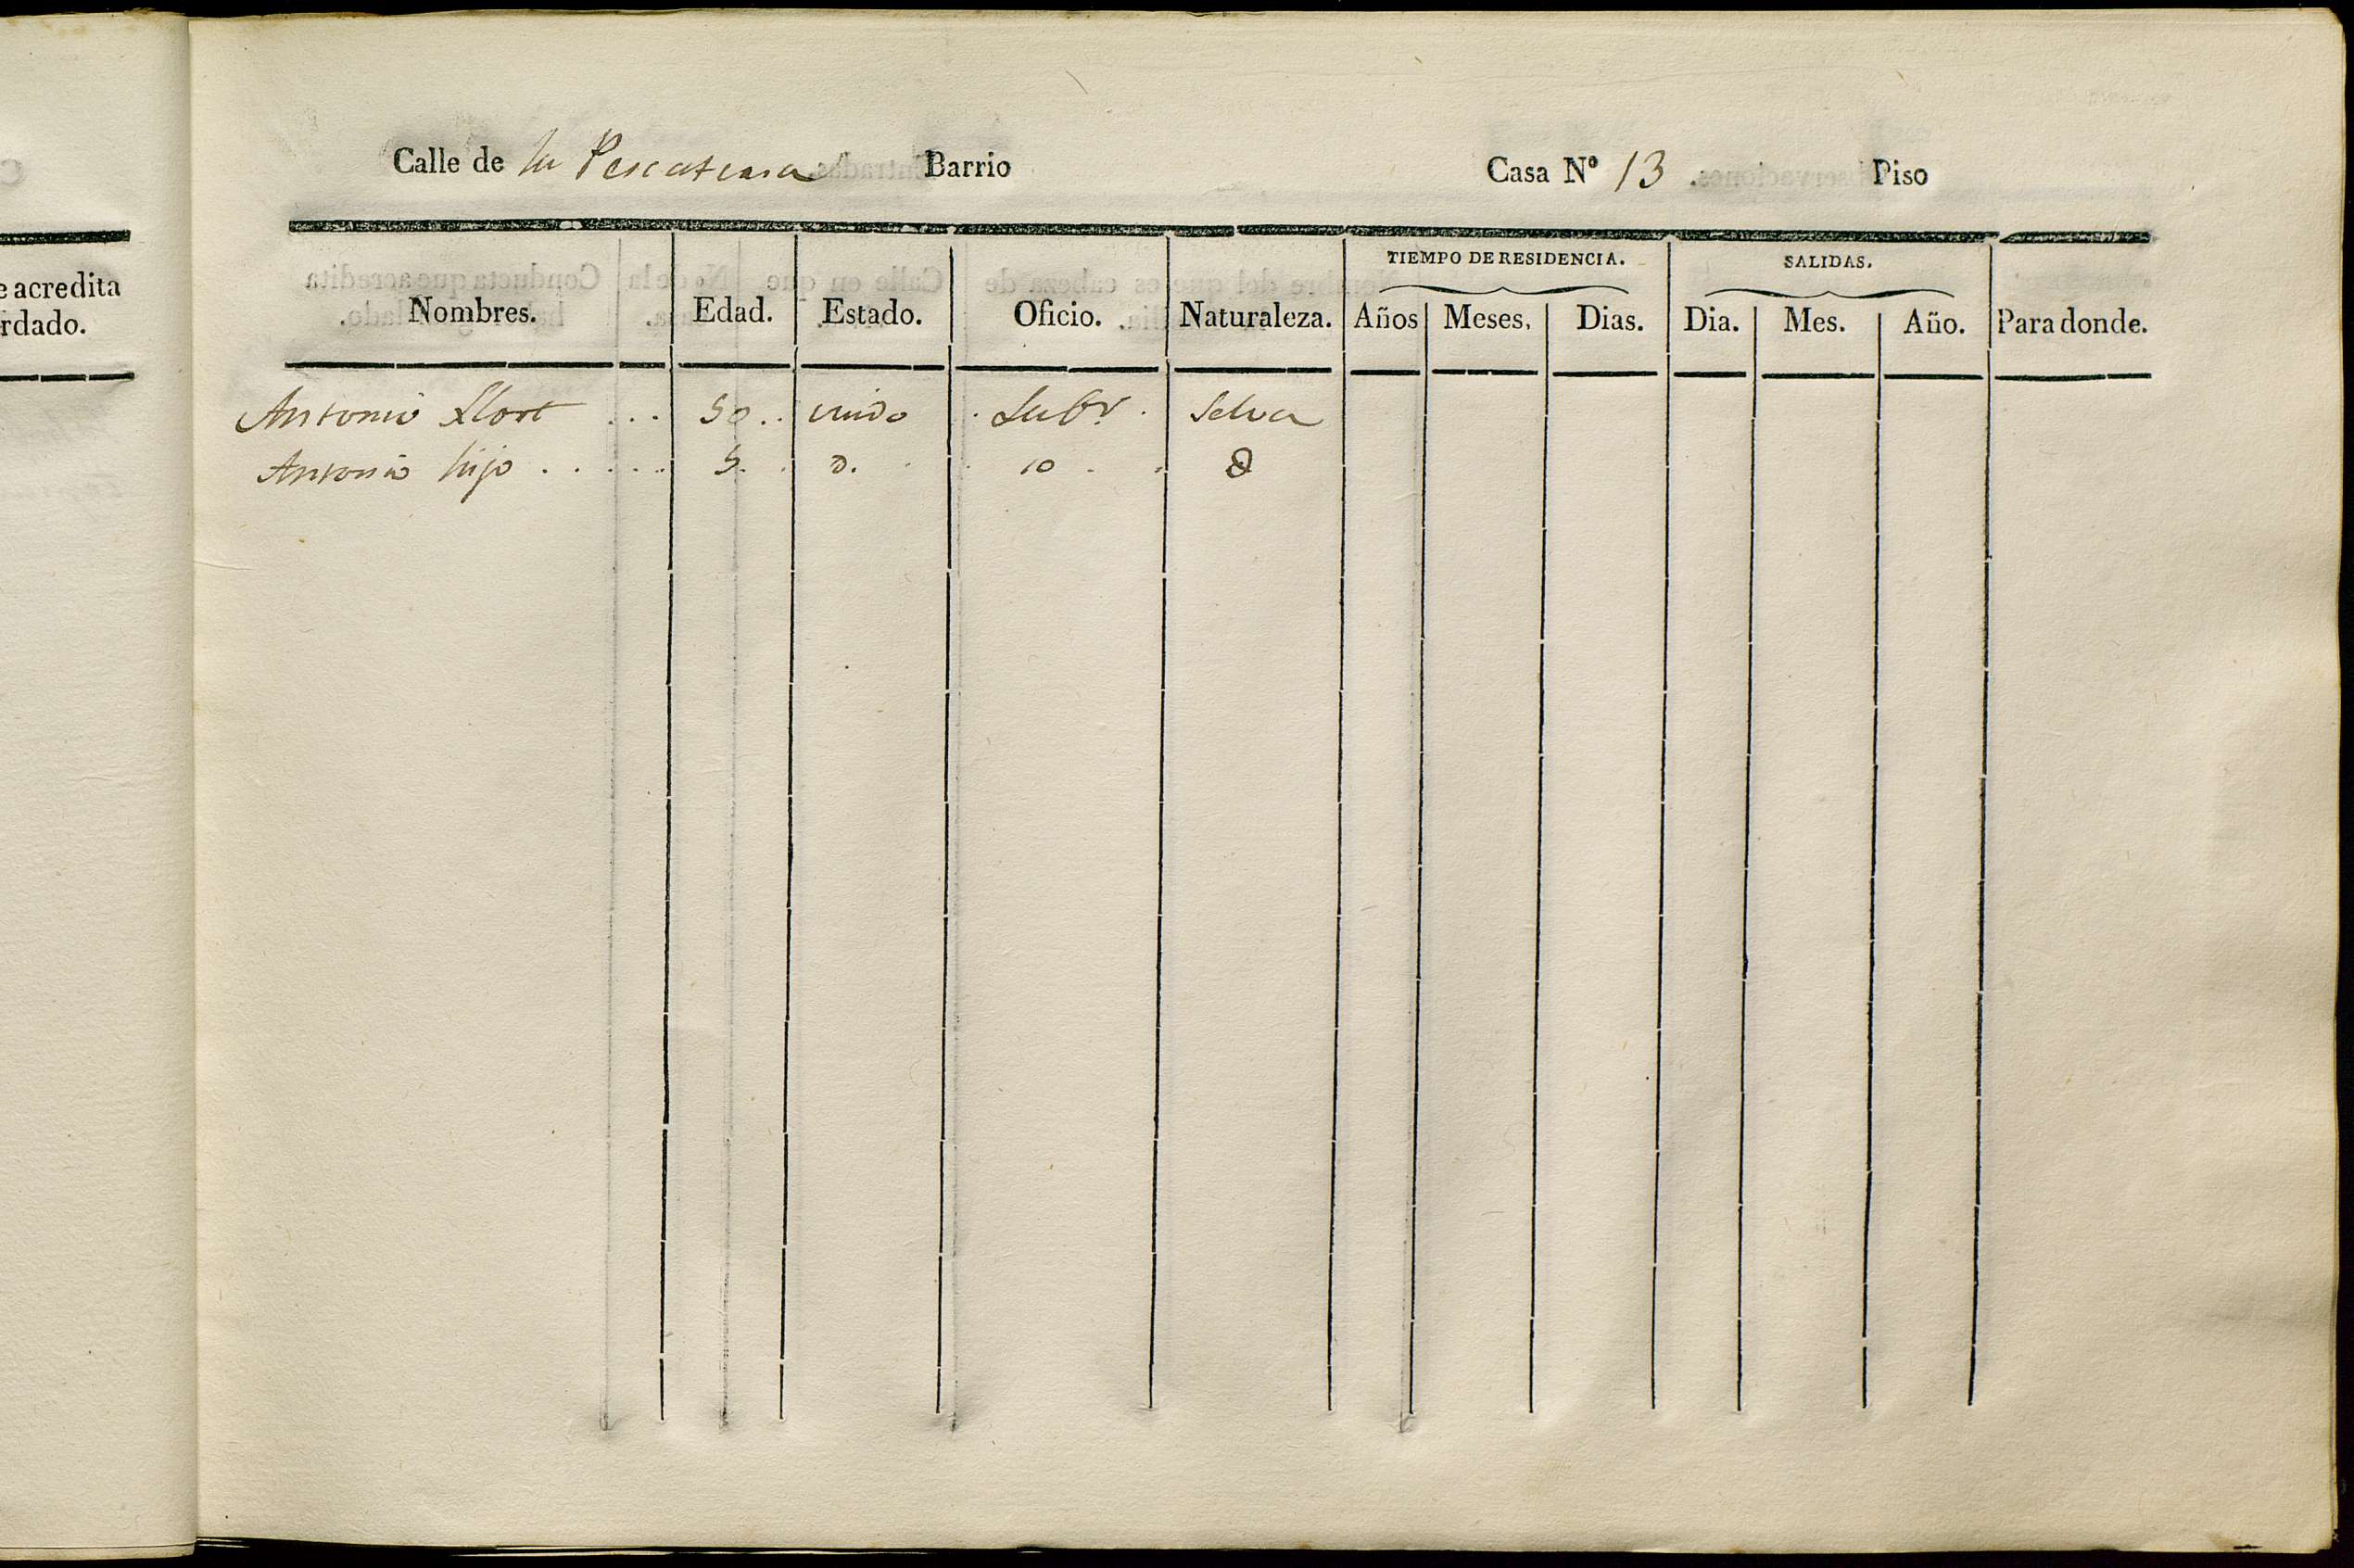 Calle de la Pescateria Barrio Casa Nº 13 Piso
e acredita
rdado.
TIEMPO DE RESIDENCIA. SALIDAS.
Nombres. Edad. Estado. Oficio. Naturaleza. Años Meses. Dias. Dia. Mes. Año. Para donde.
Antonio Llort ... 50.. viudo . Labr. Selva
Antonio hijo ..... 5. .